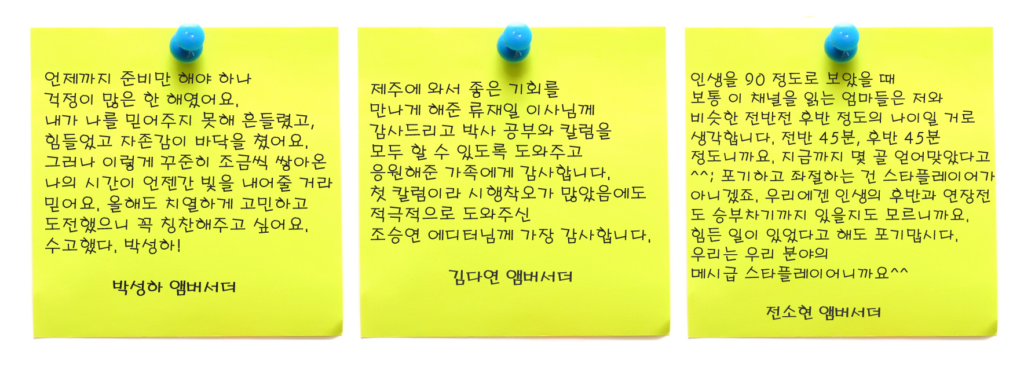 언제까지 준비만 해야 하나
걱정이 많은 한 해였어요.
내가 나를 믿어주지 못해 흔들렸고,
힘들었고 자존감이 바닥을 쳤어요.
그러나 이렇게 꾸준히 조금씩 쌓아온
나의 시간이 언젠간 빛을 내어줄 거라
믿어요. 올해도 치열하게 고민하고
도전했으니 꼭 칭찬해주고 싶어요.
수고했다. 박성하!
박성하 앰버서더
제주에 와서 좋은 기회를
만나게 해준 류재일 이사님께
감사드리고 박사 공부와 칼럼을
모두 할 수 있도록 도와주고
응원해준 가족에게 감사합니다.
첫 칼럼이라 시행착오가 많았음에도
적극적으로 도와주신
조승연 에디터님께 가장 감사합니다.
김다연 앰버서더
인생을 90 정도로 보았을 때
보통 이 채널을 읽는 엄마들은 저와
비슷한 전반전 후반 정도의 나이일 거로
생각합니다. 전반 45분, 후반 45분
정도니까요. 지금까지 몇 골 얻어맞았다고
^^; 포기하고 좌절하는 건 스타플레이어가
아니겠죠. 우리에겐 인생의 후반과 연장전
도 승부차기까지 있을지도 모르니까요.
힘든 일이 있었다고 해도 포기맙시다.
우리는 우리 분야의
메시급 스타플레이어니까요^^
전소현 앰버서더